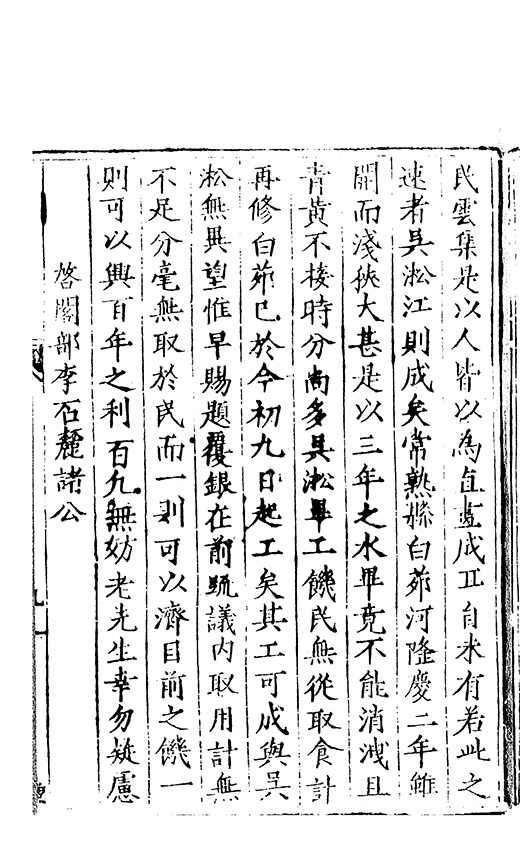 民雲集是以人皆以為直畫成工自來有若此之
速者吳淞江則成矣常熟縣白茆河隆慶二年雖
開而淺狹大甚是以三年之水畢竟不能消洩且
青黃不接時分尚多吳淞畢工饑民無從取食計
再修白茆已於今初九日起工矣其工可成與吳
淞無異望惟早賜題覆銀在前疏議內取用計無
不足分毫無取於民而一則可以濟目前之饑一
則可以興百年之利百凡無妨老先生幸勿疑慮
啓閣部李石麓諸公